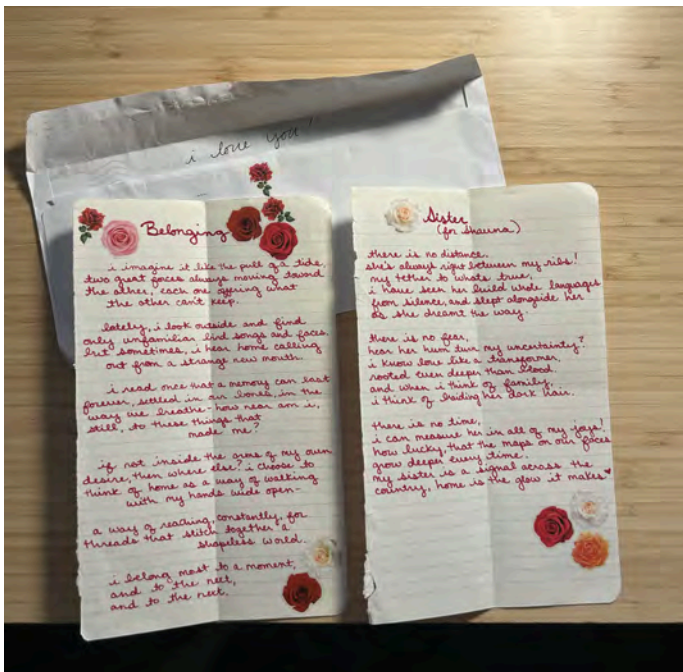 i love you!
Belonging
i imagine it like the pull of a tide,
two great forces always moving toward
the other, each one offering what
the other can't keep.
lately, i look outside and find
only unfamiliar bird songs and faces,
but sometimes, i hear home calling
out from a strange new mouth.
i read once that a memory can last
forever, settled in our bones, in the
way we breathe - how near am i,
still, to these things that
made me?
if not inside the arms of my own
desire, then where else? i choose to
think of home as a way of walking
with my hands wide open-
a way of reaching, constantly, for
threads that stitch together a
shapeless world.
i belong most to a moment,
and to the next,
and to the next,
Sister
(for Shauna)
there is no distance.
she's always right between my ribs!
my tether to what's true,
i have seen her build whole languages
from silence, and slept alongside her
as she dreamt the way.
there is no fear,
hear her hum turn my uncertainty?
i know love like a transformer,
rooted even deeper than blood.
and when i think of family,
i think of braiding her dark hair.
there is no time,
i can measure her in all of my joys!
how lucky, that the maps on our faces
grow deeper every time.
my sister is a signal across the
country, home is the glow it makes ♥